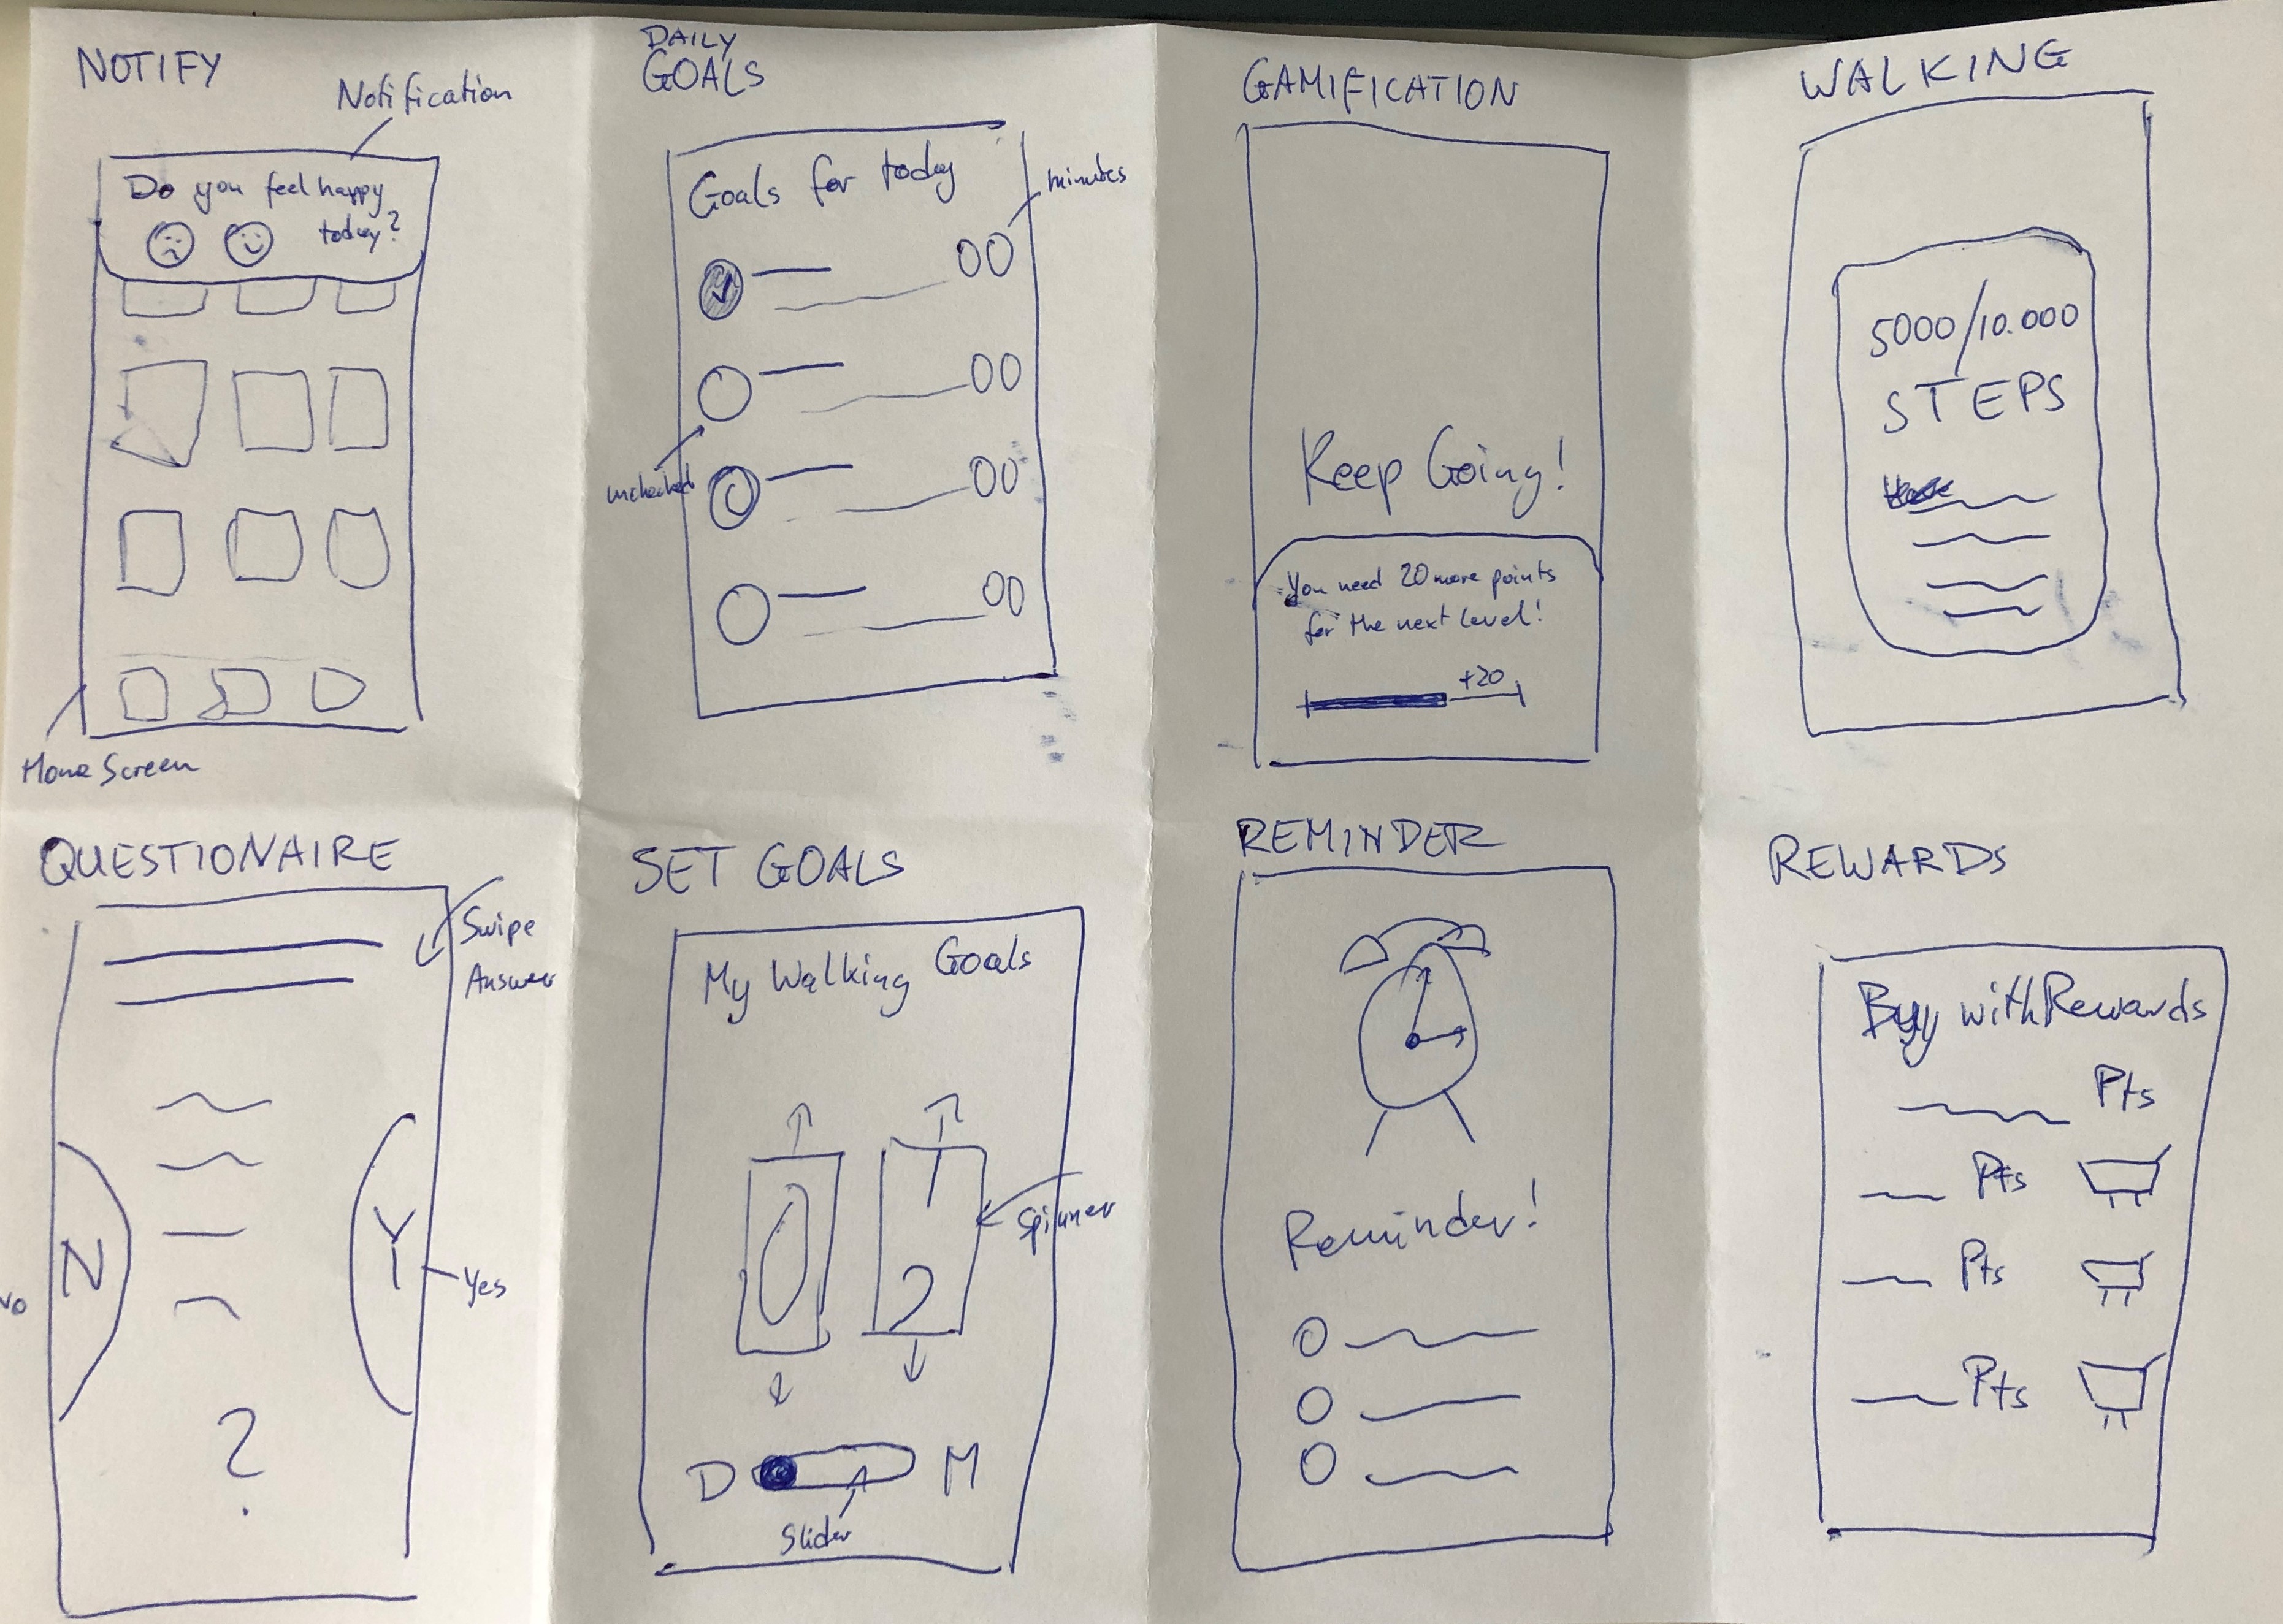 NOTIFY
Notification
Do you feel happy
today?
Home Screen
DAILY
GOALS
Goals for today
minutes
00
00
unchecked
00
00
GAMIFICATION
Keep Going!
You need 20 more points
for the next level!
+20
WALKING
5000/10.000
STEPS
QUESTIONAIRE
Swipe
Answer
N
Y
Yes
?
SET GOALS
My Walking Goals
Spinner
D
M
Slider
REMINDER
Reminder!
REWARDS
Buy with Rewards
Pts
Pts
Pts
Pts